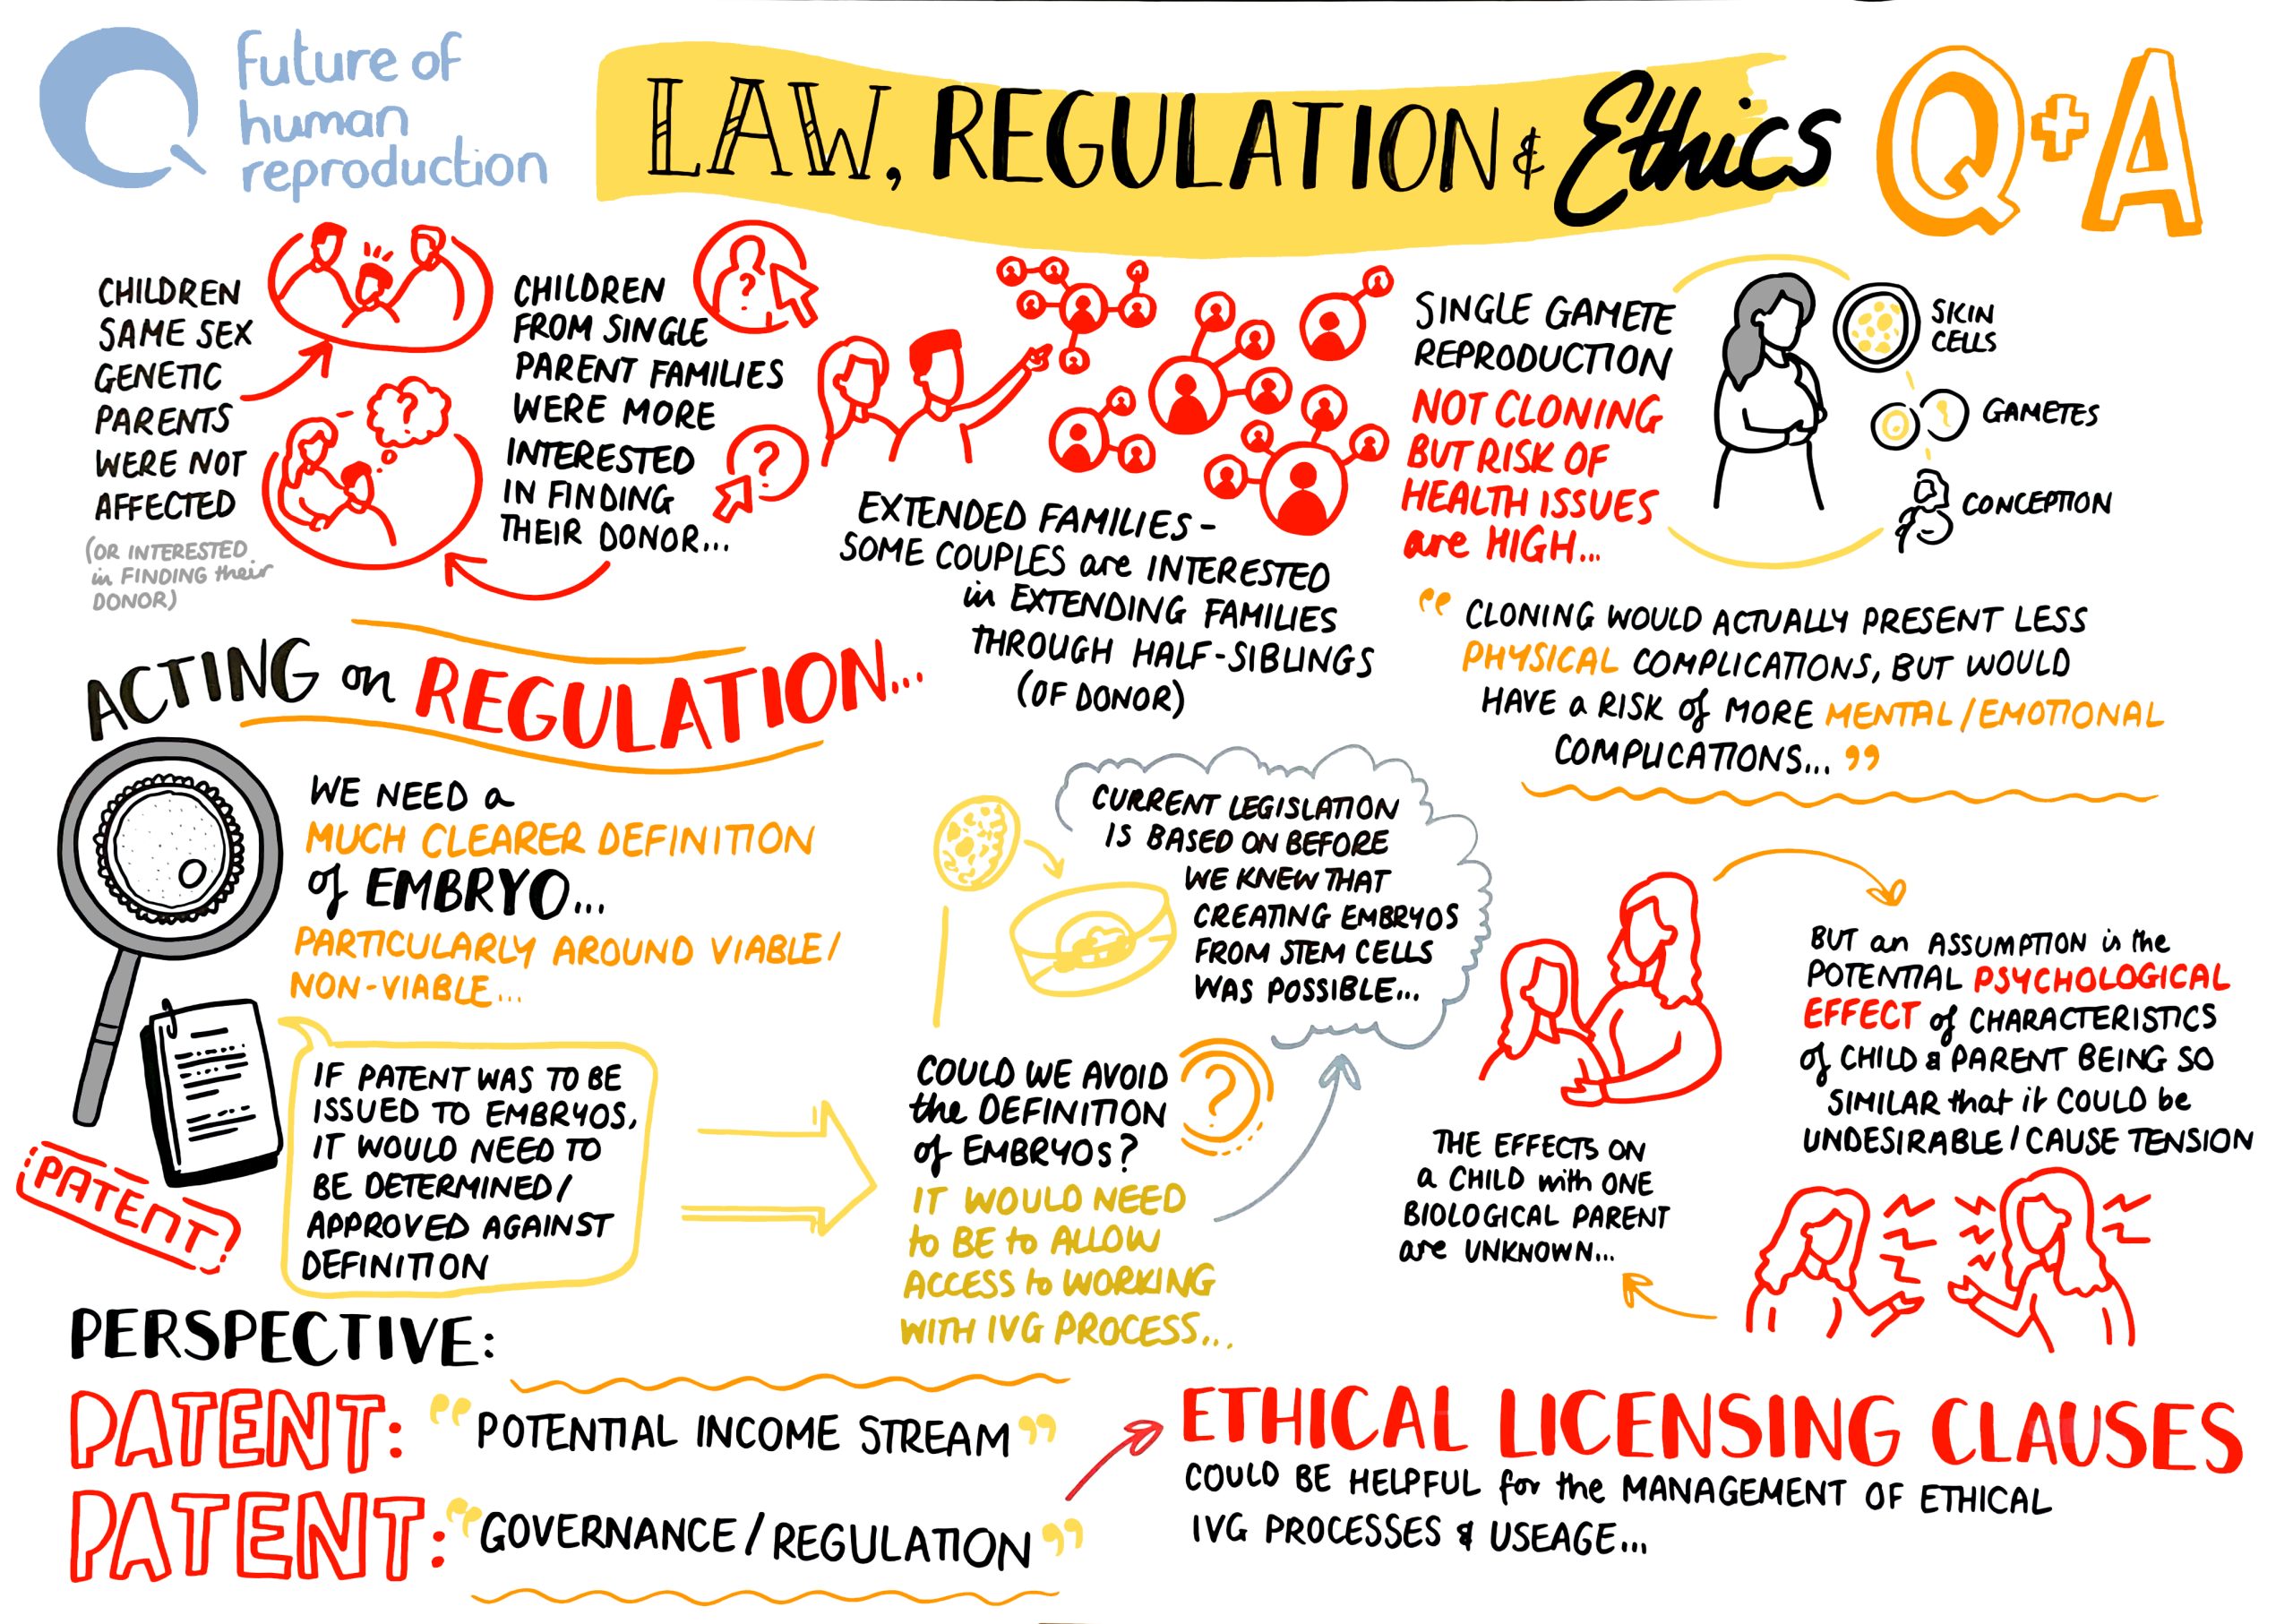 Future of
human
reproduction
LAW, REGULATION & Ethics
Q+A
CHILDREN
SAME SEX
GENETIC
PARENTS
WERE NOT
AFFECTED
(OR INTERESTED
in FINDING their
DONOR)
?
CHILDREN
FROM SINGLE
PARENT FAMILIES
WERE MORE
INTERESTED
IN FINDING
THEIR DONOR...
?
?
EXTENDED FAMILIES -
SOME COUPLES are INTERESTED
in EXTENDING FAMILIES
THROUGH HALF-SIBLINGS
(OF DONOR)
SINGLE GAMETE
REPRODUCTION
NOT CLONING
BUT RISK OF
HEALTH ISSUES
are HIGH...
SKIN
CELLS
GAMETES
CONCEPTION
“ CLONING WOULD ACTUALLY PRESENT LESS
PHYSICAL COMPLICATIONS, BUT WOULD
HAVE a RISK of MORE MENTAL/EMOTIONAL
COMPLICATIONS... ”
ACTING on REGULATION...
WE NEED a
MUCH CLEARER DEFINITION
of EMBRYO...
PARTICULARLY AROUND VIABLE/
NON-VIABLE...
PATENT?
IF PATENT WAS TO BE
ISSUED TO EMBRYOS,
IT WOULD NEED TO
BE DETERMINED/
APPROVED AGAINST
DEFINITION
COULD WE AVOID
the DEFINITION
of EMBRYOS?
?
IT WOULD NEED
to BE to ALLOW
ACCESS to WORKING
WITH IVG PROCESS...
CURRENT LEGISLATION
IS BASED ON BEFORE
WE KNEW THAT
CREATING EMBRYOS
FROM STEM CELLS
WAS POSSIBLE...
THE EFFECTS ON
a CHILD with ONE
BIOLOGICAL PARENT
are UNKNOWN...
BUT an ASSUMPTION is the
POTENTIAL PSYCHOLOGICAL
EFFECT of CHARACTERISTICS
of CHILD & PARENT BEING SO
SIMILAR that it COULD be
UNDESIRABLE/CAUSE TENSION
PERSPECTIVE:
PATENT: “POTENTIAL INCOME STREAM”
PATENT: “GOVERNANCE/REGULATION”
ETHICAL LICENSING CLAUSES
COULD BE HELPFUL for the MANAGEMENT OF ETHICAL
IVG PROCESSES & USEAGE...